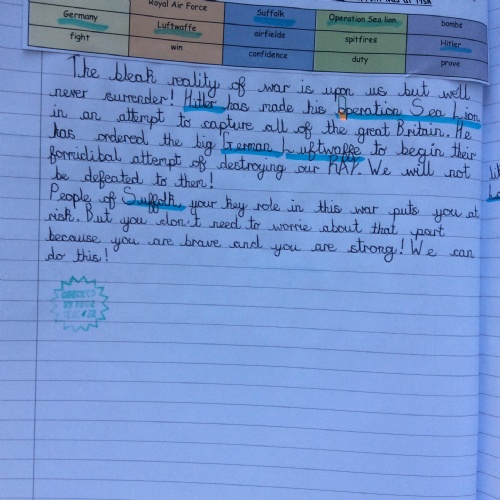 Royal Air Force
Germany Luftwaffe Suffolk Operation Sea lion bombs
fight win airfields spitfires Hitler
confidence duty prove
The bleak reality of war is upon us but well
never surrender! Hitler has made his Operation Sea Lion
in an attempt to capture all of the great Britain. He
has ordered the big German Luftwaffe to begin their
formidibal attempt of destroying our RAF. We will not
be defeated to them!
People of Suffolk, your key role in this war puts you at
risk. But you don't need to worrie about that part
because you are brave and you are strong! We can
do this!